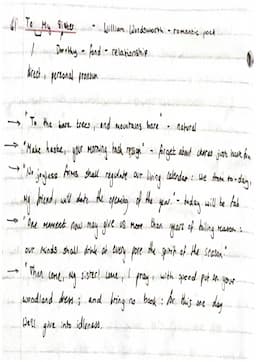 To My Sister - William Wordsworth - romantic poet
Dorothy - fond - relationship
direct, personal pronoun
→ "To the bare trees, and mountains bare" - natural
→ "Make haste, your morning task resign" - forget about chores just have fun
→ "No joyless forms shall regulate our living calendar: we from to-day,
my friend, will date the opening of the year." - today will be fab
→ "One moment now may give us more than years of toiling reason:
our minds shall drink at every pore the spirit of the season."
→ "Then come, my sister! come, I pray, with speed put on your
woodland dress; and bring no book: for this one day
we'll give into idleness.